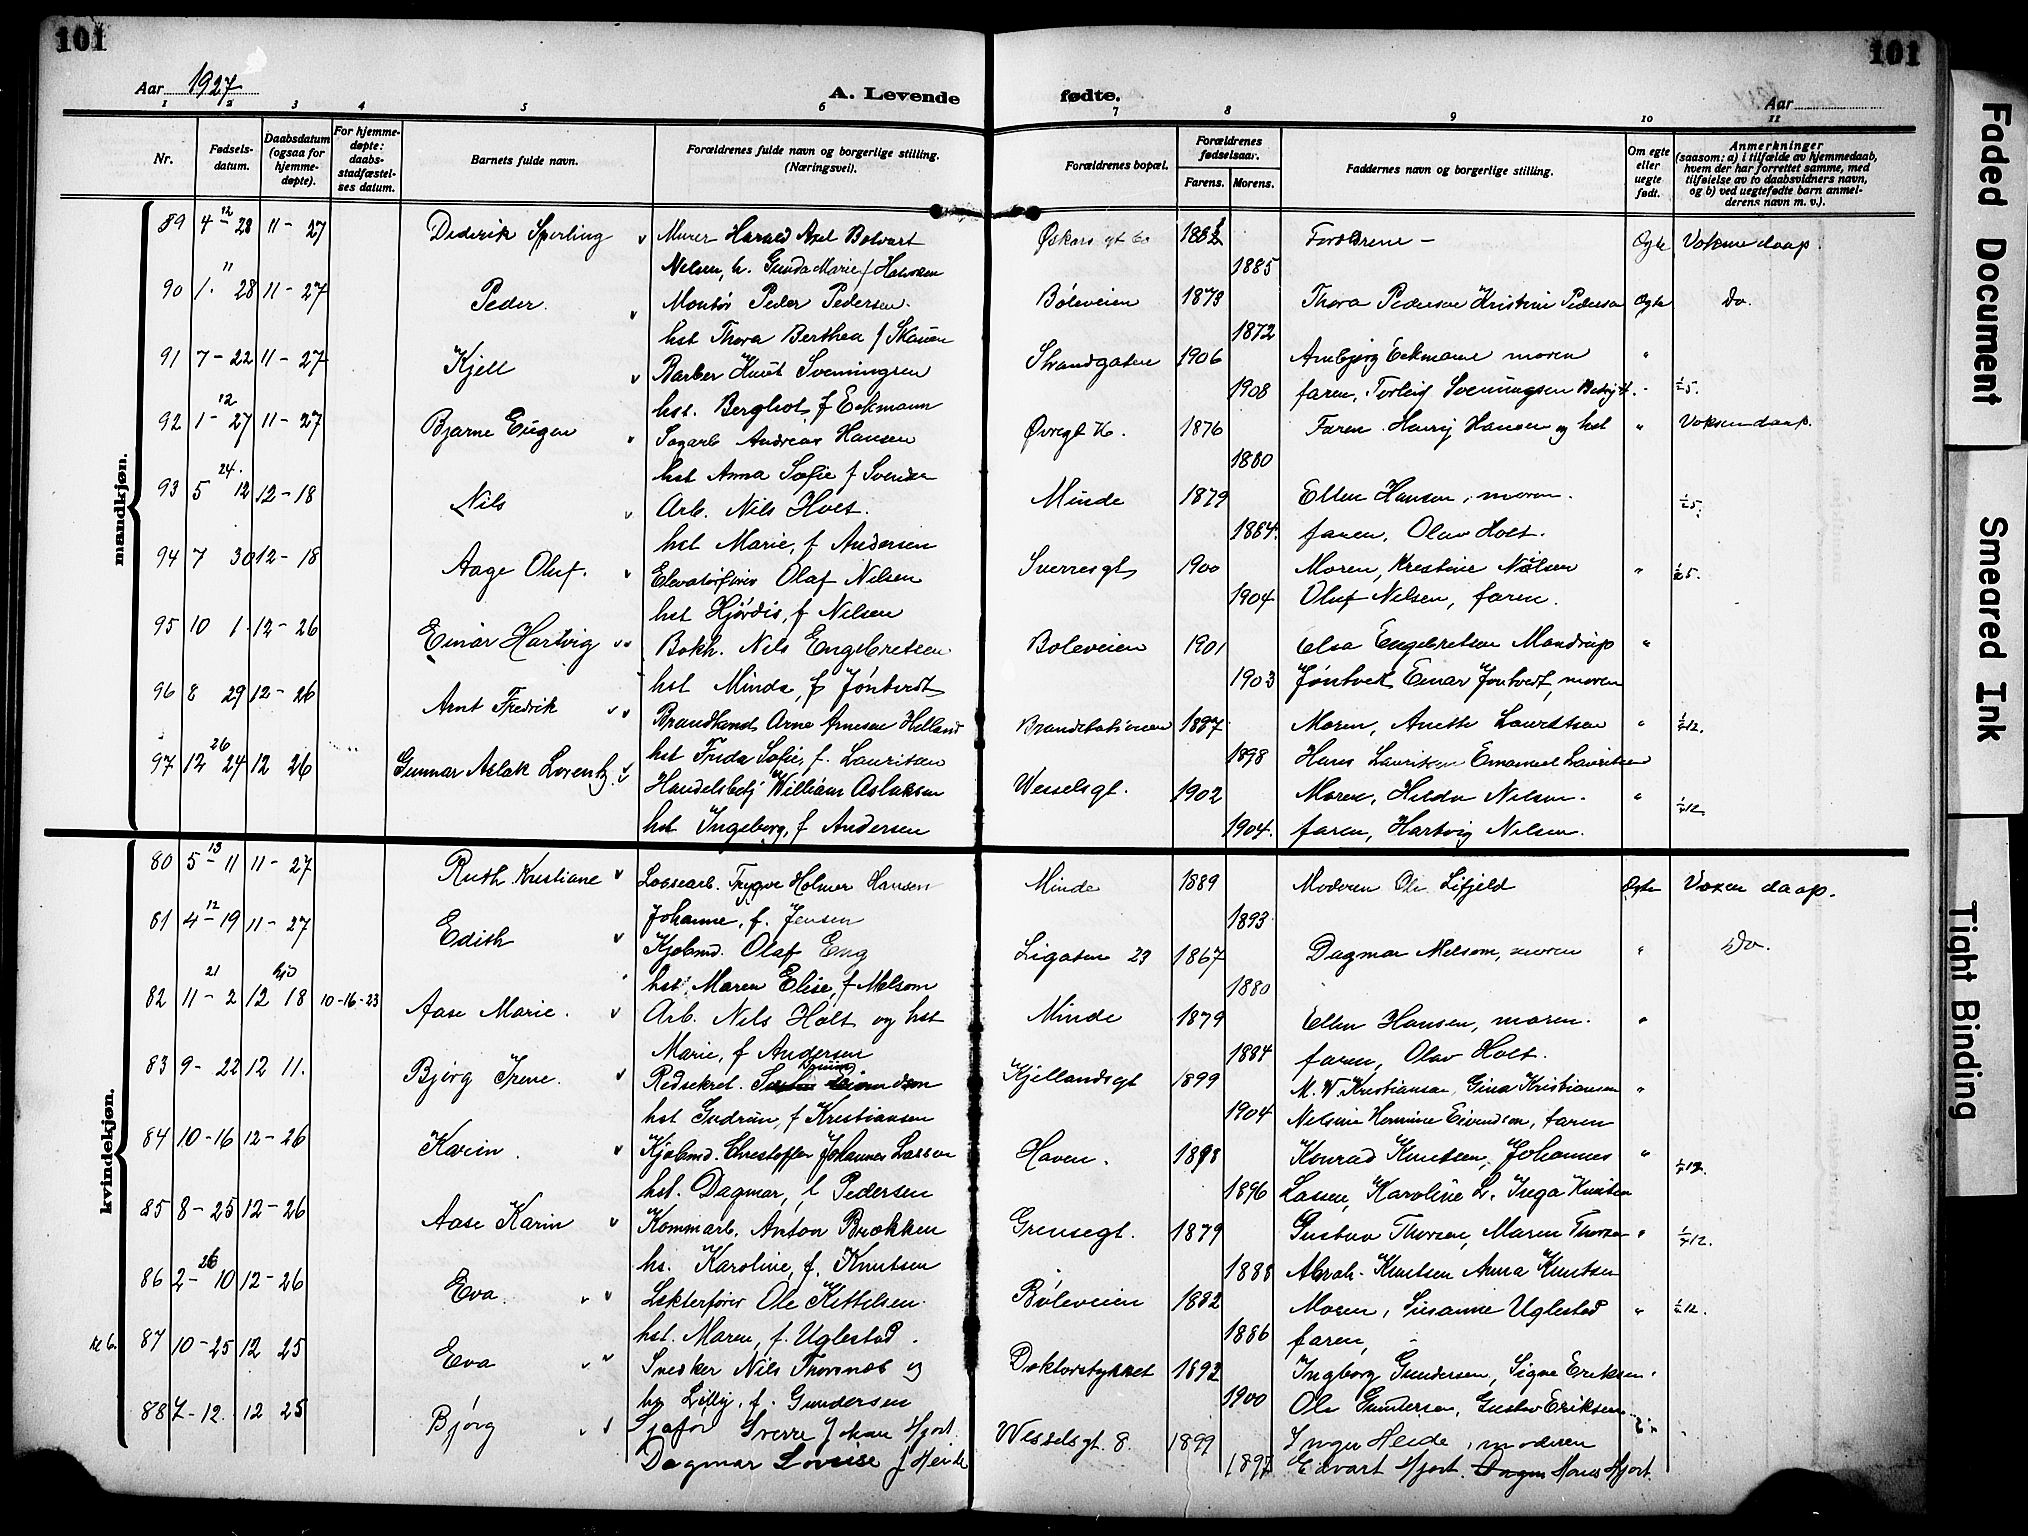 101
101
Aar 1927
A. Levende fødte.
Aar
1 2 3 4 5 6 7 8 9 10 11
Nr.
Fødsels-datum.
Daabsdatum (ogsaa for hjemme-døpte).
For hjemme-døpte: daabs-stadfæstel-ses datum.
Barnets fulde navn.
Forældrenes fulde navn og borgerlige stilling. (Næringsvei).
Forældrenes bopæl.
Forældrenes fødselsaar.
Farens. Morens.
Faddernes navn og borgerlige stilling.
Om egte eller uegte født.
Anmerkninger
(saasom: a) i tilfælde av hjemmedaab,
hvem der har forrettet samme, med
tilføielse av to daabsvidners navn,
og b) ved uegtefødte barn anmel-
derens navn m. v.).
mandkjøn.
89 4-12 28 11-27 Diderik Sperling Murer Harald Axel Bolvart Forældrene - Egte Voksne daap.
Nilsen, h. Gunda Marie f Halvorsen 1885
90 1. 11 28 11-27 Peder. Montör Peder Pedersen. Böleveien 1873 Thora Pedersen Kristine Pedersen Egte Do.
hst Thora Berthea f Skauen 1872
91 7-22 11-27 Kjell Barber Knut Svenningsen Strandgaten 1906 moren "
hst. Bergliot f Eckmann 1908 faren, Torleif Svenningsen
92 1-12 27 11-27 Bjarne Eugen Sagarb Andreas Hansen Øvregt 1876 Faren. Harry Hansen og hst " Voksendaap.
hst Anna Sofie f Svendsen 1880
93 5 24 12 12-18 Nils Arb. Nils Holt. Minde 1879 Ellen Hansen, moren.
hst Marie, f Andersen 1884. faren, Olav Holt.
94 7 30 12-18 Aage Oluf. Elevatorfører Olaf Nilsen Sverresgt 1900 Moren, Kristine Nilsen "
hst Hjördis, f Nilsen 1904 Oluf Nilsen, faren.
95 10 1. 12-26 Einar Hartvig Bokh. Nils Engebretsen Boleveien 1901 Elsa Engebretsen Mandrup "
hst Minda, f Jöntvedt 1903 Jöntvedt Einar Jöntvedt, moren
96 8 29 12-26 Arnt Fredrik Brandkonst Arne Arnesen Helland Brandstationen 1897 Moren, Anette Lauritsen "
hst Frida Sofie, f. Lauritsen 1898 Hans Lauritsen Emanuel Lauritsen
97 12 26 24 12 26 Gunnar Aslak Lorentz. Handelsbetj William Aslaksen Wesselsgt. 1902 Moren, Hilda Nilsen. "
hst Ingeborg, f Andersen 1904. faren, Hartvig Nilsen.
kvindekjøn.
80 5-13 11 11-27 Ruth Kristiane Lossearb. Trygve Holmer Hansen Minde 1889 Moderen Ole Lifjeld Egte Voxen daap.
Johanne, f. Jensen 1893
81 4-12 19 11-27 Edith Kjöbmd. Olaf Eng Ligaten 23 1867 Dagmar Melsom, moren " Do.
hst. Maren Elise, f Melsom 1880
82 11-21 2 12 18 10-16-23 Aase Marie. Arb. Nils Holt og hst Minde 1879 Ellen Hansen, moren. "
Marie, f Andersen 1884 faren, Olav Holt.
83 9-22 12 11. Bjørg Irene. Redsekret. Kjellandsgt 1899 M. W Kristiansen, Gina Kristiansen "
hst Gudrun, f Kristiansen 1904 Nelsine Hermine Eivendsen, faren
84 10-16 12-26 Karin. Kjöbmd. Christoffer Johannes Lassen Haven. 1898 Konrad Knutsen, Johannes "
hst. Dagmar, f Pedersen 1896 Lassen, Karoline L. Inga Knutsen
85 8-25 12-26 Aase Karin Kommarb. Anton Brækken Grensegt. 1879 Gustav Thorsen, Maren Thorsen "
hs. Karoline, f. Knutsen 1888 Abrah. Knutsen Anna Knutsen
86 2-26 10 12-26 Eva. Lekterfører Ole Kittelsen. Böleveien 1882 Moren, Susanne Uglestad "
hst. Maren, f. Uglestad. 1886 faren,
87 10-25 12 25 Eva Snedker Nils Thorsnes og Doktorstykket 1892 Ingborg Gundersen, Signe Eriksen.
h. Lilly, f. Gundersen 1900 Ole Gundersen, Gustav Eriksen
88 7-12. 12 25 Bjørg Sjafør Sverre Johan Hjort. Wesselsgt. 8. 1899 Inger Heide, moderen
Dagmar Lovise f Heide 1897 Edvart Hjort.
Faded Document
Smeared Ink
Tight Binding